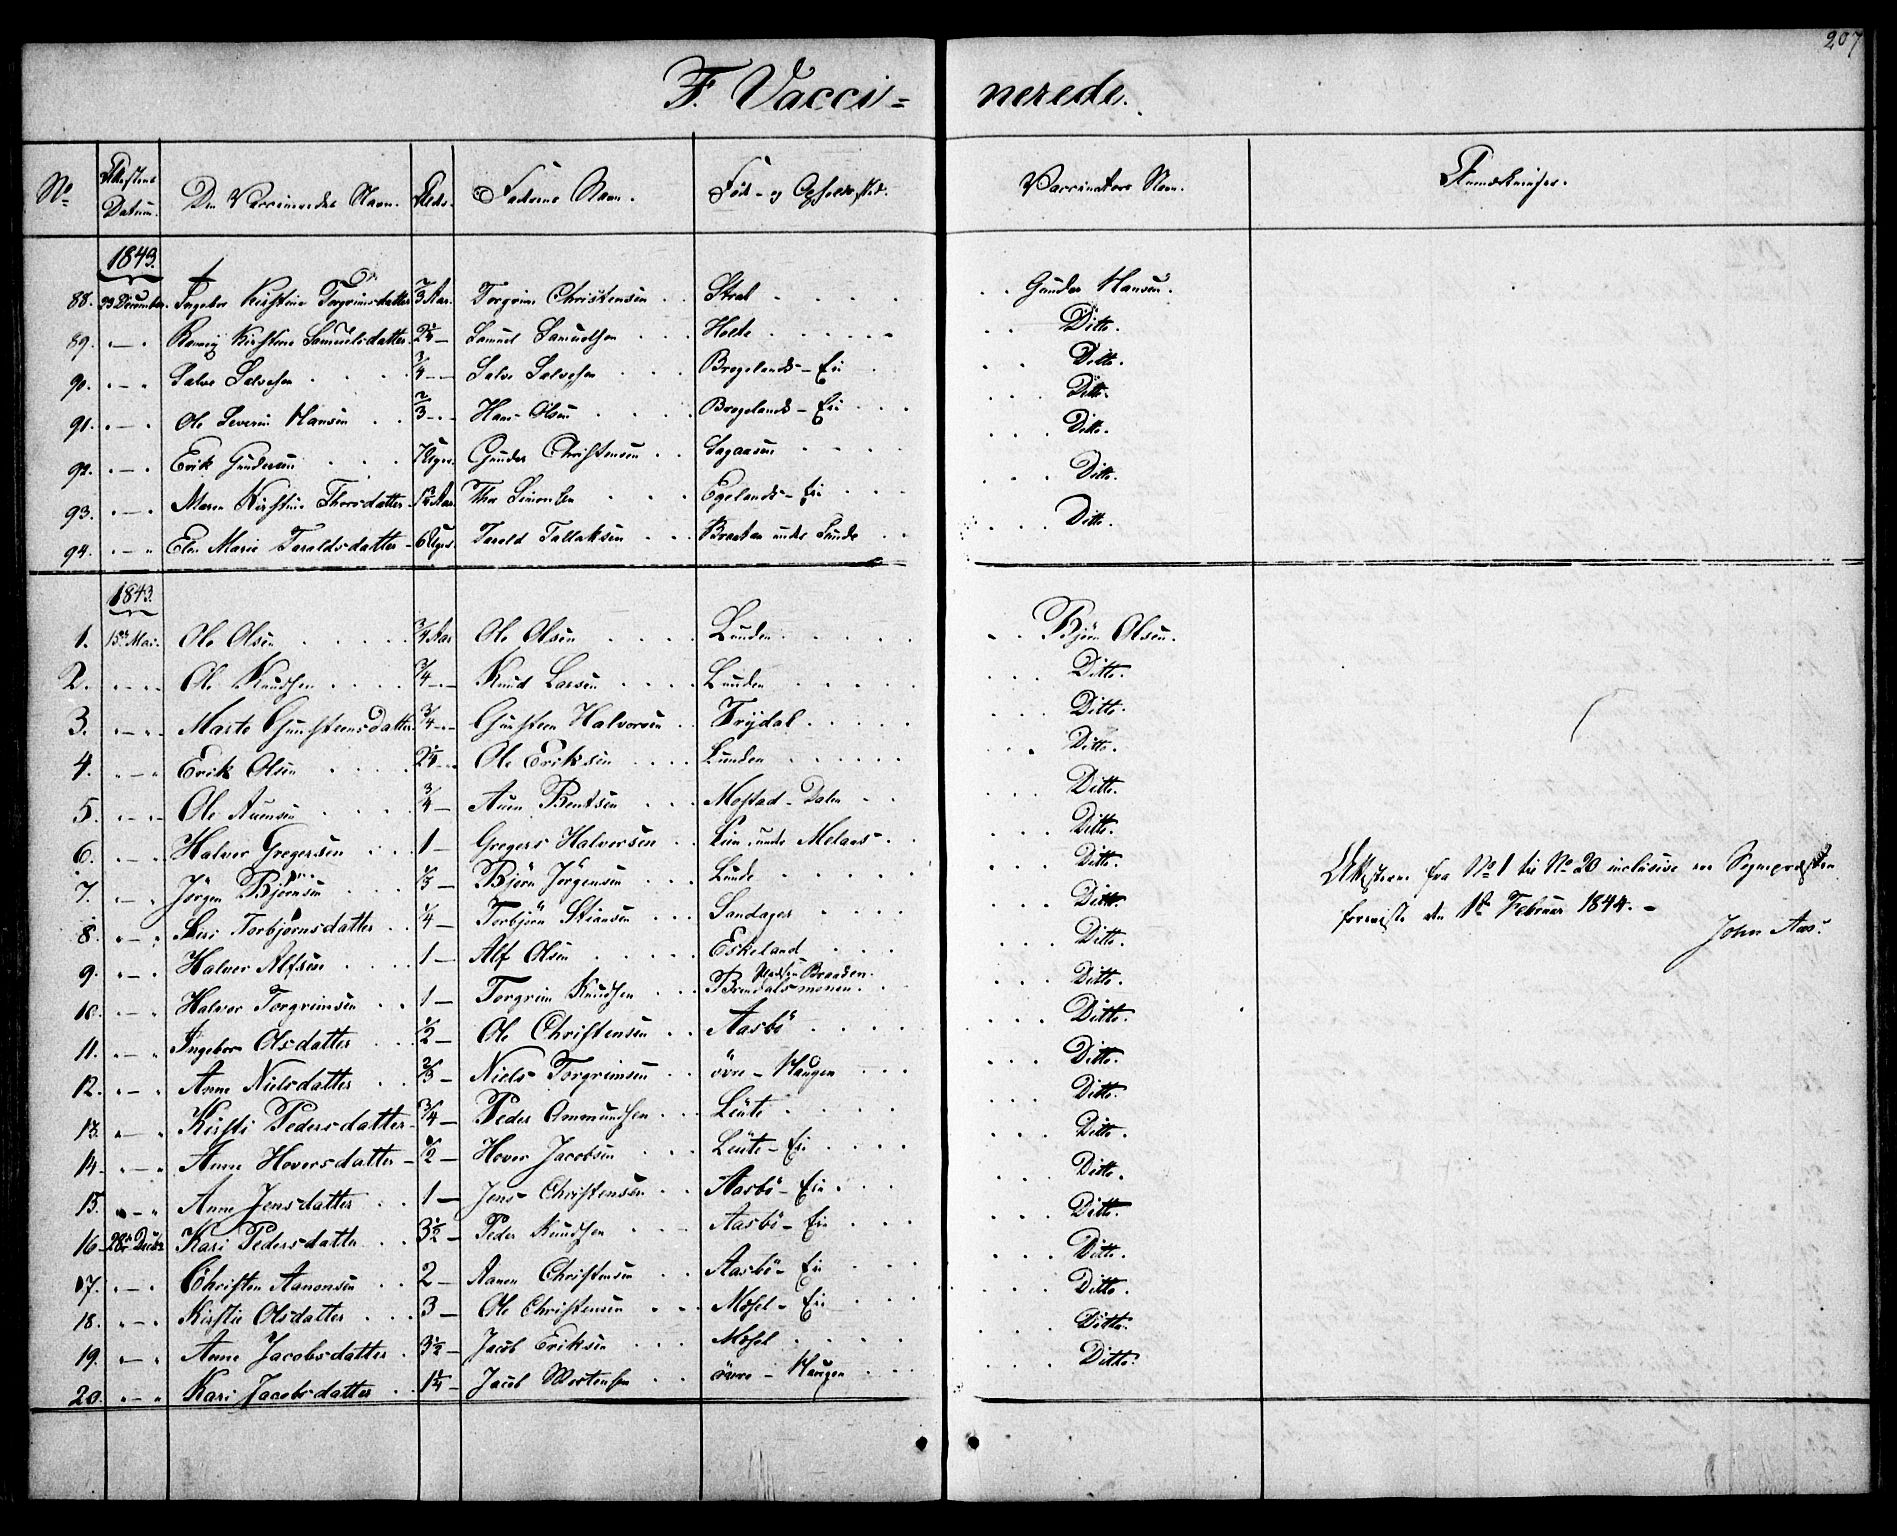 207
F. Vacci= nerede.
No Attestens Datum. Den Vaccineredes Navn. Alder. Faderens Navn. Føde- og Opholdssted. Vaccinators Navn. Anmærkninger.
1843.
88. 23 December. Ingebor Kirstine Torgrimsdatter Aar. Torgrim Christensen Stral Gunder Hansen.
89. " — " Kirstine Samuelsdatter. 2½ — Samuel Samuelsen Holte Ditto.
90. " — " Salve Salvesen ¾ — Salve Salvesen Bregelands-Eie Ditto.
91. " — " Ole Severin Hansen ⅔ — Hans Olsen Bregelands-Eie Ditto.
92. " — " Erik Gundersen 7 Uger. Gunder Christensen Sagaasen Ditto.
93. " — " Maren Kirstine Thorsdatter Aar. Thor Simonsen Egelands-Eie Ditto.
94. " — " Elen Marie Taraldsdatter 6 Uger Tarald Tallaksen Braaten under Lunde Ditto.
1843.
1. 15de Mai. Ole Olsen ¾ Aar Ole Olsen Lunden Bjørn Olsen.
2. " — " Ole Knudsen ¾ — Knud Larsen Lunden Ditto.
3. " — " Marte Gunsteensdatter ¾ — Gunsteen Halvorsen Frydal Ditto.
4. " — " Erik Olsen 2½ — Ole Eriksen Lunden Ditto.
5. " — " Ole Auensen ¾ — Auen Bentsen Mostad-Dalen Ditto.
6. " — " Halvor Gregersen 1 — Gregers Halvorsen under Melaas Ditto.
7. " — " Jörgen Björnsen — Björn Jörgensen Lunde Ditto.
8. " — " Siri Torbjörnsdatter ¼ — Torbjörn Stiansen Sandager Ditto.
9. " — " Halvor Alfsen 1 — Alf Olsen Eskeland Ditto.
10. " — " Halvor Torgrimsen 1 — Torgrim Knudsen Pladsen Braaden. Brendalsmonen Ditto.
11. " — " Ingebor Olsdatter ½ — Ole Christensen Aasbö Ditto.
12. " — " Anne Nielsdatter ⅔ — Niels Torgrimsen övre-Haugen Ditto.
13. " — " Kirsti Pedersdatter ¾ — Peder Ommundsen Leüte Ditto.
14. " — " Anne Hoversdatter ½ — Hover Jacobsen Leüte-Eie Ditto.
15. " — " Anne Jensdatter 1 — Jens Christensen Aasbö-Eie Ditto.
16. 28de Decbr Kari Pedersdatter 3½ — Peder Knudsen Aasbö-Eie Ditto.
17. " — " Christen Aanonsen 2 — Aanon Christensen Aasbö-Eie Ditto.
18. " — " Kirstie Olsdatter 3 — Ole Christensen Mosel-Eie Ditto.
19. " — " Anne Jacobsdatter 3½ — Jacob Eriksen Mosel Ditto.
20. " — " Kari Jacobsdatter 1¼ — Jacob Mortensen övre-Haugen Ditto.
Attesterne fra No 1 til No 20 inclusive ere Sognepræsten
foreviste den 1te Februar 1844. –
John Aas.